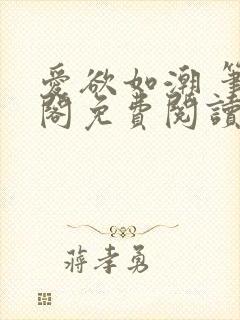 愛欲如潮 筆
閣免費閱讀
蔣孝勇